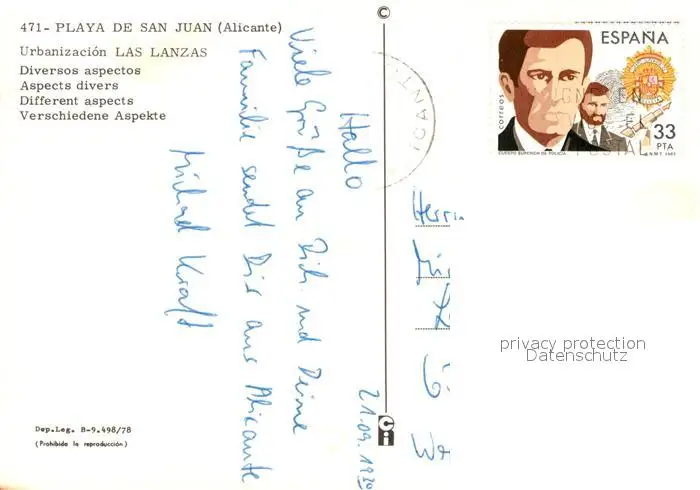 471- PLAYA DE SAN JUAN (Alicante)
Urbanización LAS LANZAS
Diversos aspectos
Aspects divers
Different aspects
Verschiedene Aspekte
Hallo
Viele Grüße an Dich und Deine
Familie sendet Dir aus Alicante
Michael Kraft
21.09.19
Dep.Leg. B-9.498/78
(Prohibida la reproducción)
©
ci
ALICANT
ESPAÑA
correos
33
PTA
CUERPO SUPERIOR DE POLICIA
F.N.M.T.
POSTAL
Herrn
privacy protection
Datenschutz